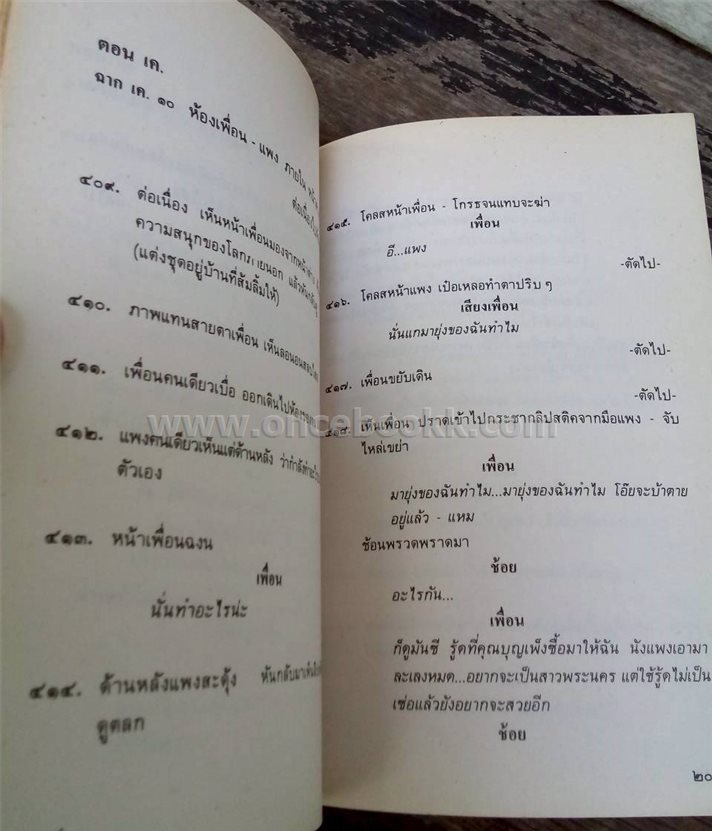 ตอน เค.
ฉาก เค. ๑๐ ห้องเพื่อน - แพง ภายใน
ต่อเนื่อง
๔๐๙. ต่อเนื่อง เห็นหน้าเพื่อนมองจากหน้าต่าง
ความสนุกของโลกภายนอก แล้วหันกลับ
(แต่งชุดอยู่บ้านที่ส้มลิ้มให้)
๔๑๐. ภาพแทนสายตาเพื่อน
๔๑๑. เพื่อนคนเดียวเบื่อ ออกเดินไปห้อง
๔๑๒. แพงคนเดียวเห็นแต่ด้านหลัง
ตัวเอง
๔๑๓. หน้าเพื่อนฉงน
เพื่อน
นั่นทำอะไรน่ะ
๔๑๔. ด้านหลังแพงสะดุ้ง หันกลับมา
ดูตลก
๔๑๕. โคลสหน้าเพื่อน - โกรธจนแทบจะฆ่า
เพื่อน
อี...แพง
-ตัดไป-
๔๑๖. โคลสหน้าแพง เป๋อเหลอทำตาปริบ ๆ
เสียงเพื่อน
นั่นแกมายุ่งของฉันทำไม
-ตัดไป-
๔๑๗. เพื่อนขยับเดิน
-ตัดไป-
๔๑๘. เห็นเพื่อน ปราดเข้าไปกระชากลิปสติคจากมือแพง - จับ
ไหล่เขย่า
เพื่อน
มายุ่งของฉันทำไม...มายุ่งของฉันทำไม โอ๊ยจะบ้าตาย
อยู่แล้ว - แหม
ช้อนพรวดพราดมา
ช้อย
อะไรกัน...
เพื่อน
ก็ดูมันซี รู้ดที่คุณบุญเพ็งซื้อมาให้ฉัน นังแพงเอามา
ละเลงหมด...อยากจะเป็นสาวพระนคร แต่ใช้รู้ดไม่เป็น
เซ่อแล้วยังอยากจะสวยอีก
ช้อย
๒๐
www.oncebookk.com